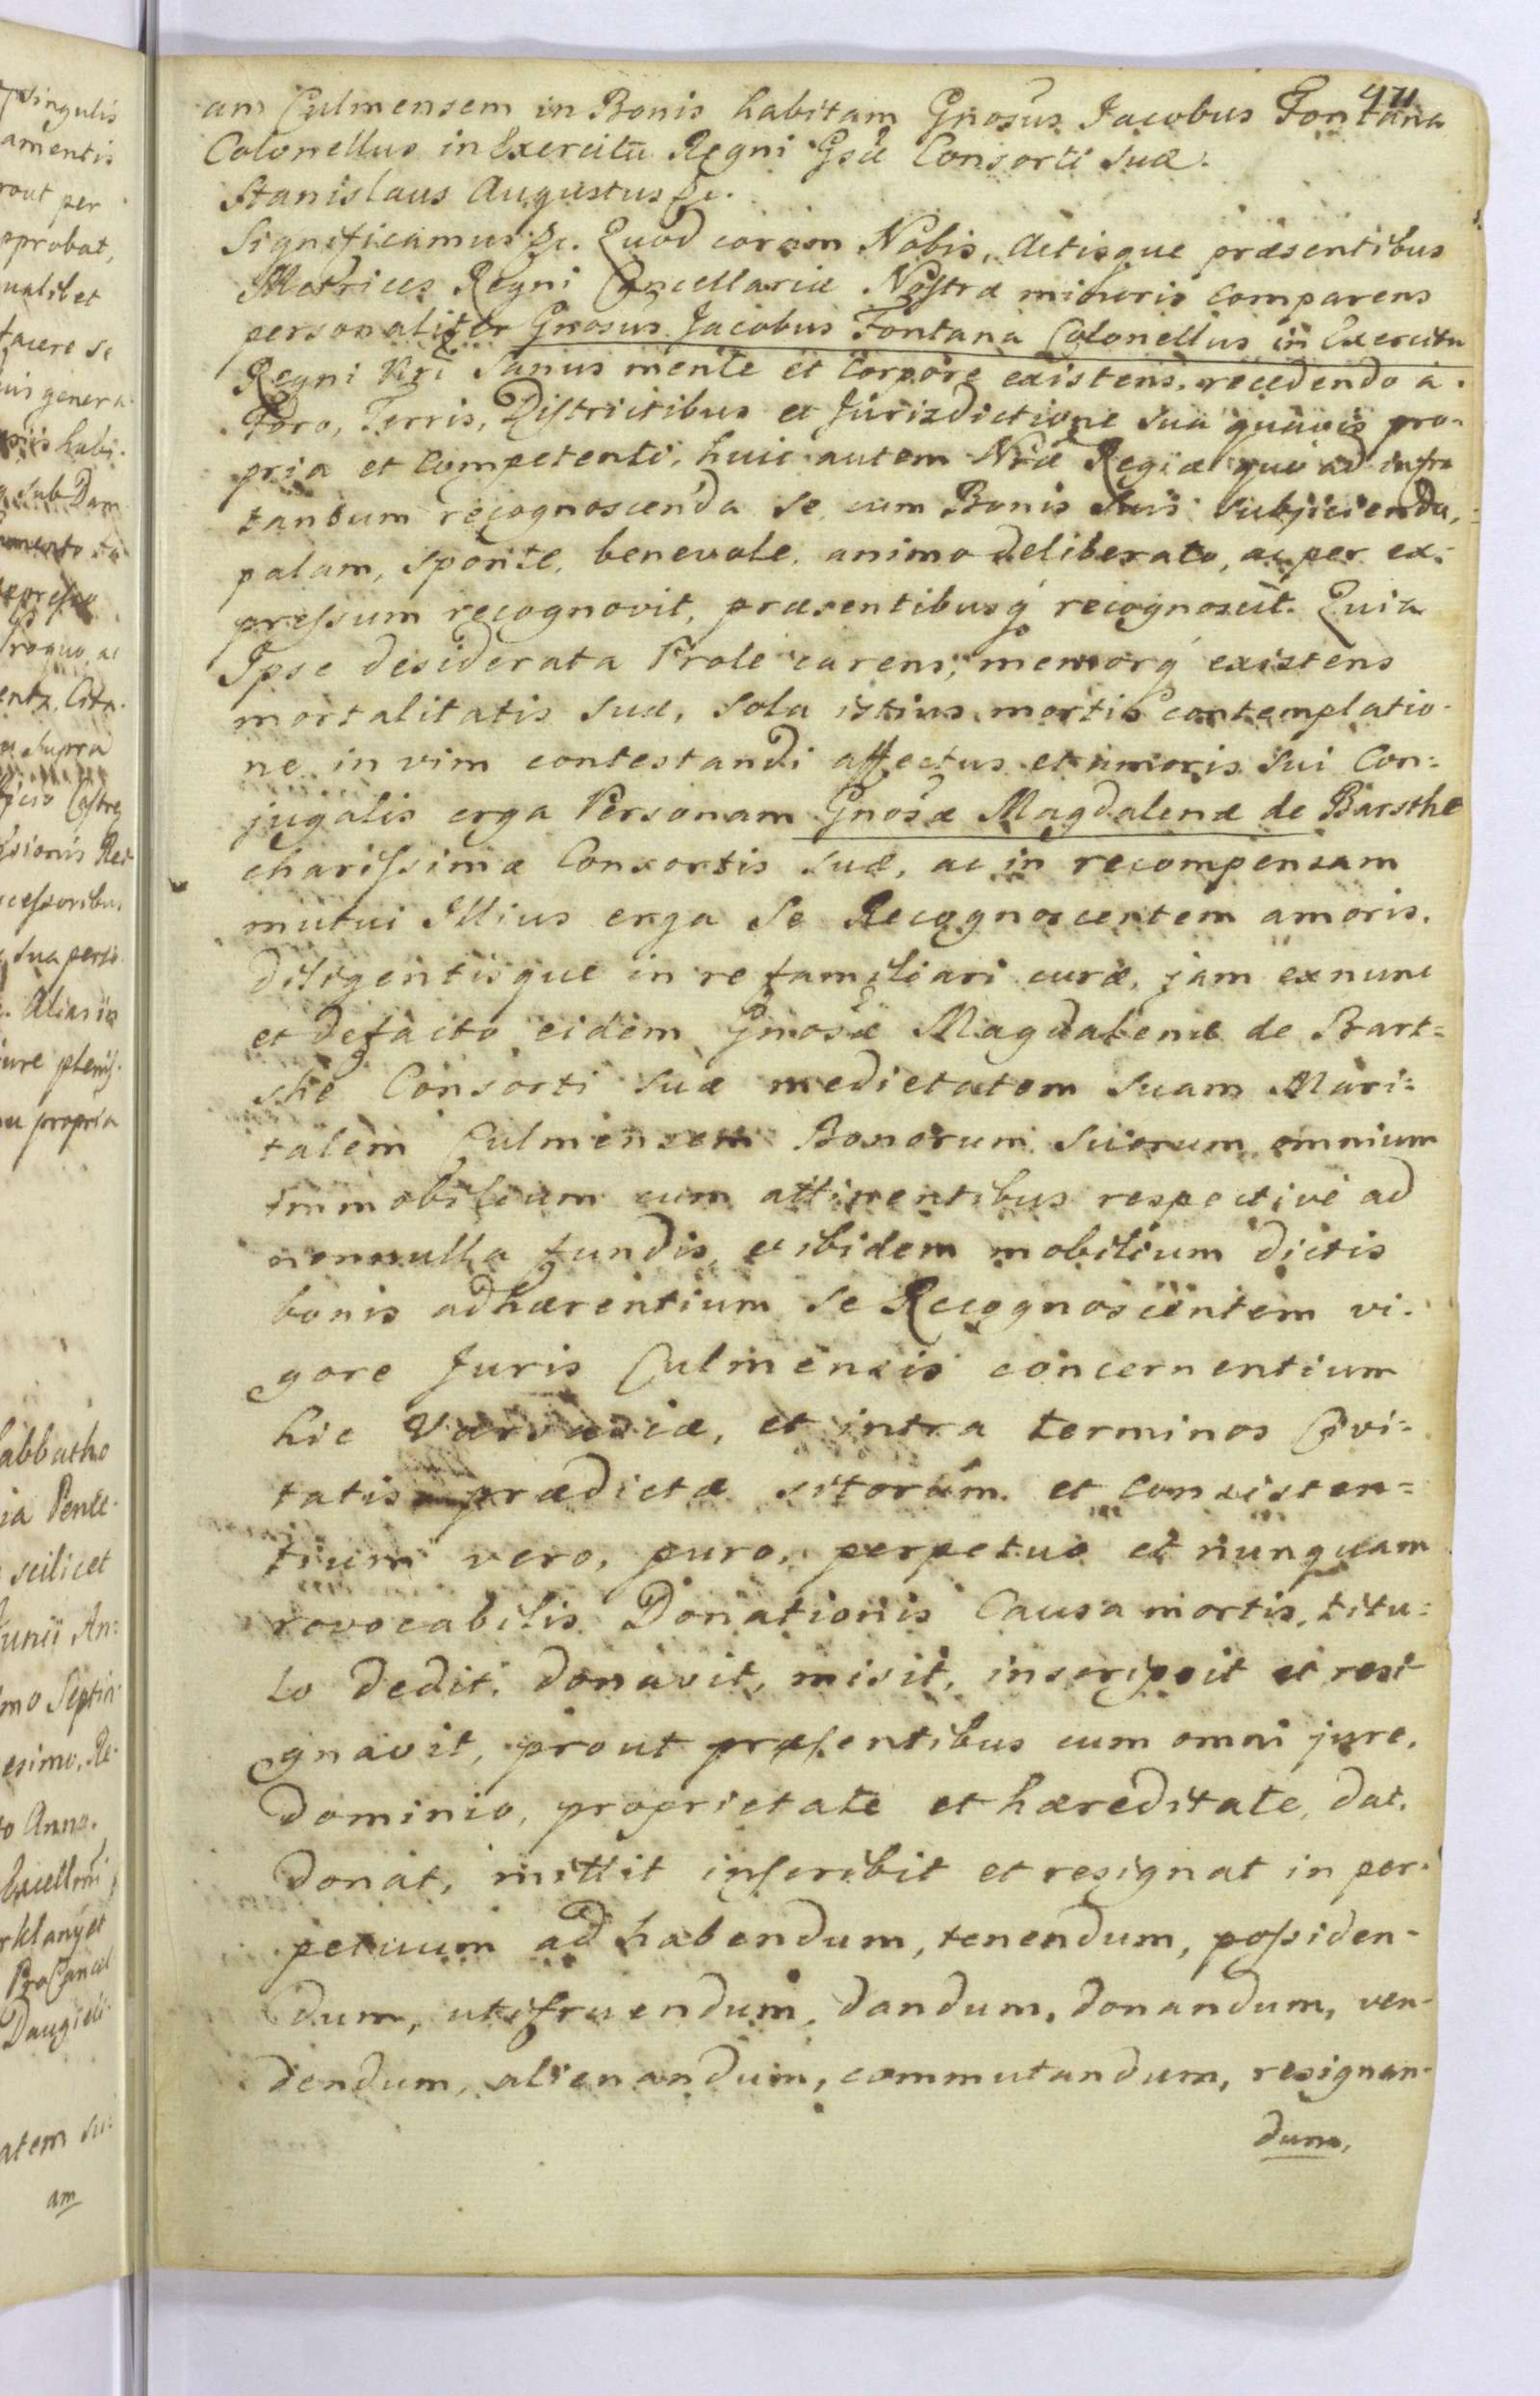 471
am Culmensem in Bonis habitam Gnosus Jacobus Fontana
Colonellus in Exercitu Regni Gsæ Consorti suæ.
Stanislaus Augustus &c.
Significamus &c. Quod coram Nobis, Actisque præsentibus
Metrices Regni Cancellariæ Nostræ minoris comparens
personaliter Gnosus Jacobus Fontana Colonellus in Exercitu
Regni Nri sanus mente et corpore existens, recedendo à
Foro, Terris, Districtibus et Jurizdictione sua quavis pro-
pria et competenti, huic autem Nræ Regiæ quo ad infra
tantum recognoscenda se cum Bonis suis subjiciendo,
palam, sponte, benevole, animo deliberato, ac per ex-
pressum recognovit, præsentibusq́ recognoscit. Quia
Ipse desiderata Prole carens, memorq́ existens
mortalitatis suæ, sola istius mortis contemplatio-
ne in vim contestandi affectus et amoris sui Con=
jugalis erga Personam Gnosæ Magdalenæ de Barsthe
charissimæ Consortis suæ, ac in recompensam
mutui Illius erga se Recognoscentem amoris,
diligentisque in re familiari curæ, jam exnunc
et defacto eidem Gnosæ Magdalenæ de Bart=
she Consorti suæ medietatem suam Mari=
talem Culmensem Bonorum suorum omnium
immobilium cum attinentibus respective ad
nonnulla fundis, et ibidem mobilium dictis
bonis adhærentium se Recognoscentem vi-
gore Juris Culmensis concernentium
hic Varsaviæ, et intra terminos Civi=
tatis prædictæ sitorum et consisten=
tium vero, puro, perpetuo et nunquam
revocabilis Donationis Causa mortis, titu=
lo dedit, donavit, misit, inscripsit et resi
gnavit, prout præsentibus cum omni jure,
dominio, proprietate et hæreditate, dat,
donat, mittit inscribit et resignat in per-
petuum ad habendum, tenendum, possiden-
dum, utifruendum, dandum, donandum, ven-
dendum, alienandum, commutandum, resignan-
dum,